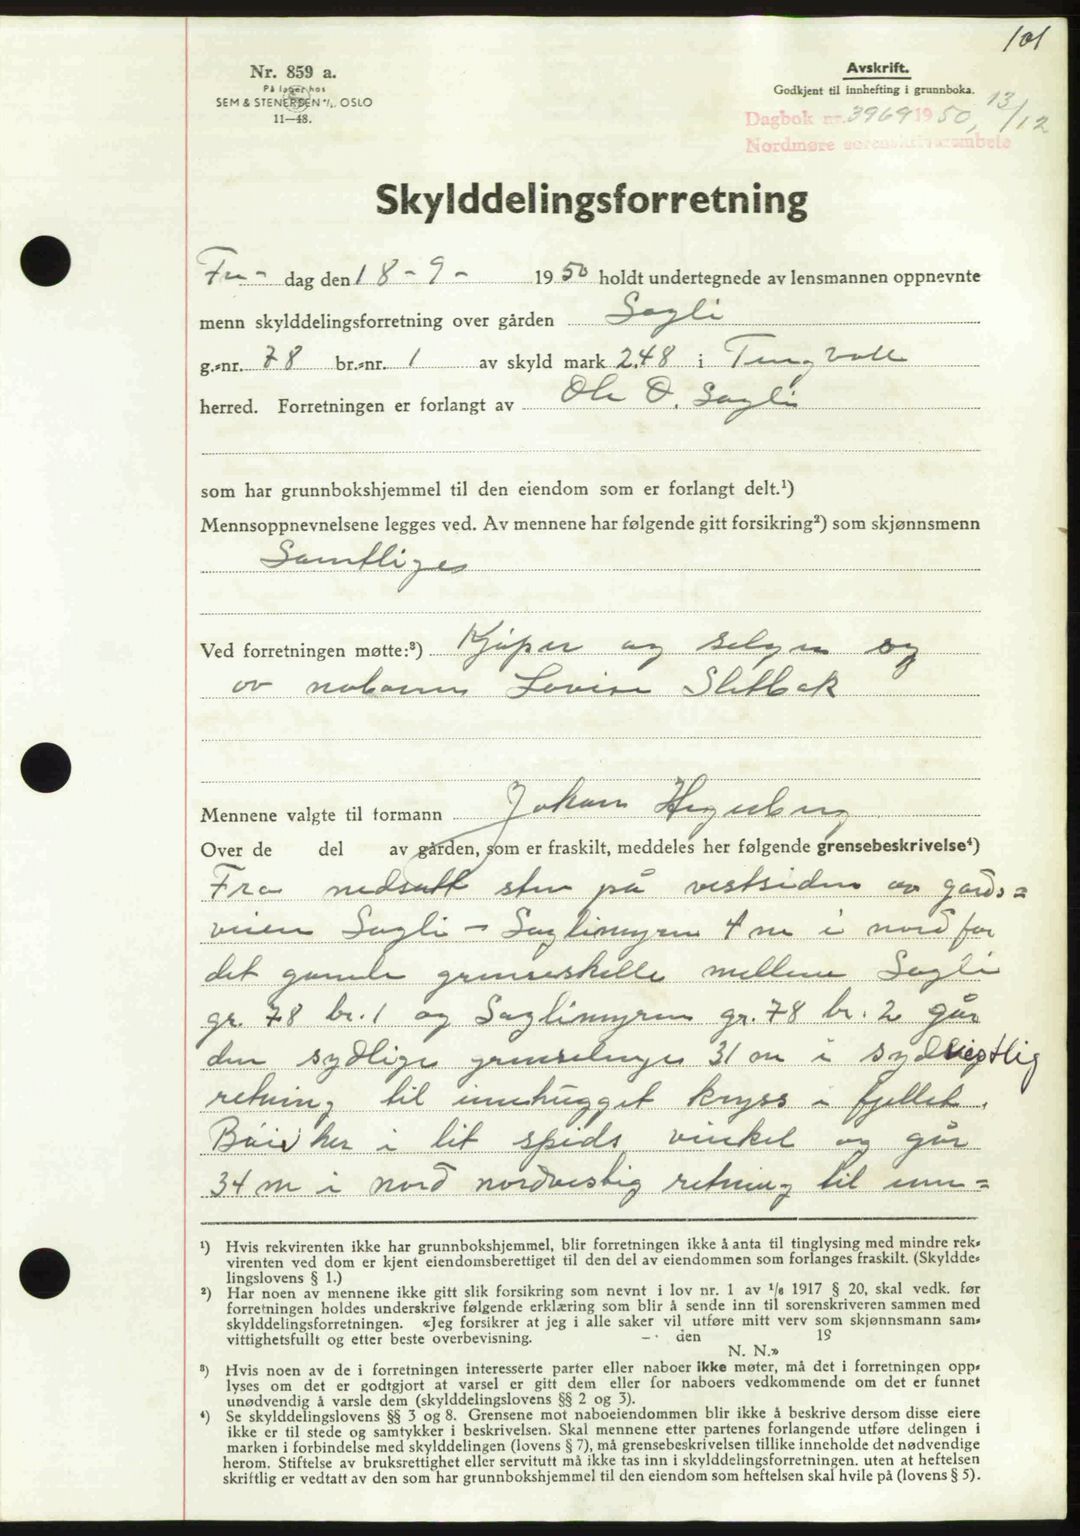 101
Nr. 859 a.
På lager hos
SEM & STENERSEN A/S, OSLO
11—48.
Avskrift.
Godkjent til innhefting i grunnboka.
Dagbok nr. 3969 1950, 13/12
Nordmøre sorenskriverembete
Skylddelingsforretning
Fre- dag den 18-9- 1950 holdt undertegnede av lensmannen oppnevnte
menn skylddelingsforretning over gården Sagli
g.-nr. 78 br.-nr. 1 av skyld mark 2.48 i Tingvoll
herred. Forretningen er forlangt av Ole O. Sagli
som har grunnbokshjemmel til den eiendom som er forlangt delt.¹)
Mennsoppnevnelsene legges ved. Av mennene har følgende gitt forsikring²) som skjønnsmenn
Samtliges
Ved forretningen møtte:³) Kjøper og selgen og
av naboerne Lovise Sletbak
Mennene valgte til formann Johan
Over de del av gården, som er fraskilt, meddeles her følgende grensebeskrivelse⁴)
Fra nedsatt sten på vestsiden av gards=
veien Sagli - Saglimyren 4 m i nord for
det gamle grenseskelle mellem Sagli
gr. 78 br. 1 og Saglimyren gr. 78 br. 2 går
den sydlige grenselinje 31 m i sydvestlig
retning til innhugget kryss i fjellet.
Bøier her i lit spids vinkel og går
34 m i nord nordvestlig retning til inn=
¹) Hvis rekvirenten ikke har grunnbokshjemmel, blir forretningen ikke å anta til tinglysing med mindre rek-
virenten ved dom er kjent eiendomsberettiget til den del av eiendommen som forlanges fraskilt. (Skyldde-
lingslovens § 1.)
²) Har noen av mennene ikke gitt slik forsikring som nevnt i lov nr. 1 av 1/6 1917 § 20, skal vedk. før
forretningen holdes underskrive følgende erklæring som blir å sende inn til sorenskriveren sammen med
skylddelingsforretningen. «Jeg forsikrer at jeg i alle saker vil utføre mitt verv som skjønnsmann sam-
vittighetsfullt og etter beste overbevisning. — den 19
N. N.»
³) Hvis noen av de i forretningen interesserte parter eller naboer ikke møter, må det i forretningen opp-
lyses om det er godtgjort at varsel er gitt dem eller for naboers vedkommende om det er funnet
unødvendig å varsle dem (skylddelingslovens §§ 2 og 3).
⁴) Se skylddelingslovens §§ 3 og 8. Grensene mot naboeiendommen blir ikke å beskrive dersom disse eiere
ikke er til stede og samtykker i beskrivelsen. Skal mennene etter partenes forlangende utføre delingen i
marken i forbindelse med skylddelingen (lovens § 7), må grensebeskrivelsen tillike inneholde det nødvendige
herom. Stiftelse av bruksrettighet eller servitutt må ikke tas inn i skylddelingsforretningen, uten at heftelsen
skriftlig er vedtatt av den som har grunnbokshjemmel til den eiendom som heftelsen skal hvile på (lovens § 5).